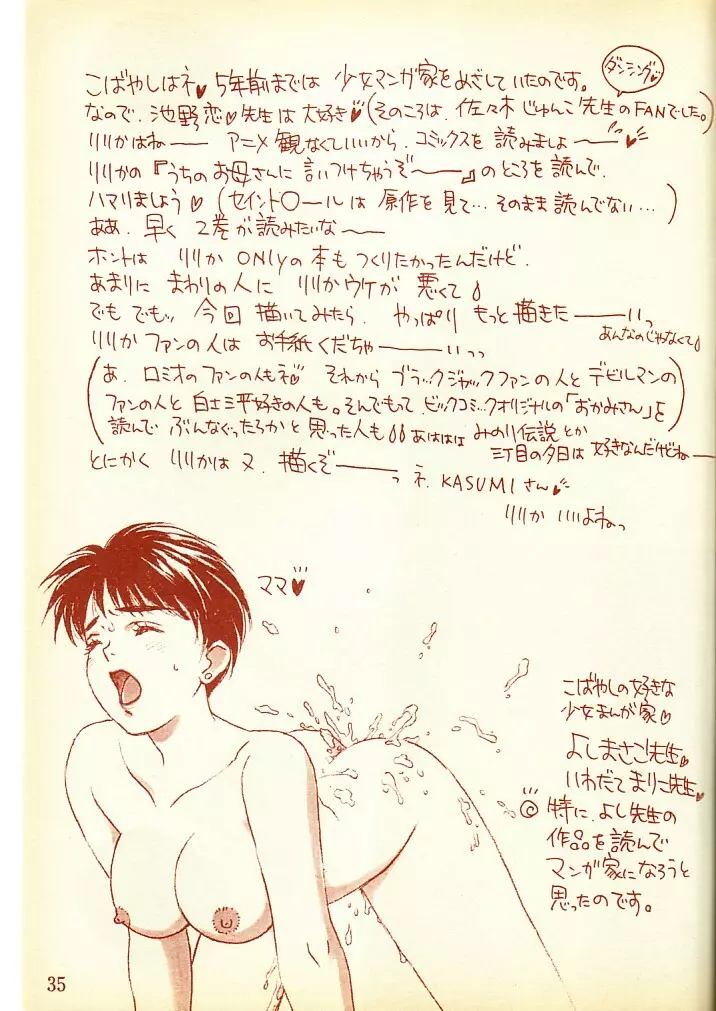 こばやしはネ♥5年前までは 少女マンガ家をめざしていたのです。
ダンシング♥
なので、池野恋♥先生は大好き♥(そのころは、佐々木じゅんこ先生のFANでした。)
リリかはねーー アニメ観なくていいから、コミックスを読みましょーー♥
リリかの『うちのお母さんに言いつけちゃうぞーー』のところを読んで、
ハマりましょう♥(セイント〇ールは 原作を見て…そのまま読んでない…)
ああ、早く 2巻が読みたいなーー
ホントは リリか ONLyの本もつくりたかったんだけど、
あまりに まわりの人に リリかウケが 悪くて
でもでもッ 今回 描いてみたら、やっぱり もっと描きたーーいっ
あんなのじゃなくて
リリか ファンの人は お手紙くだちゃーーいっっ
(あ、ロミオのファンの人もネ♥ それから ブラックジャックファンの人と デビルマンの
ファンの人と 白土三平好きの人も。そんでもって ビックコミックオリジナルの「おかみさん」を
読んで ぶんなぐったろかと思った人も あははは みのり伝説とか
三丁目の夕日は 好きなんだけどねーー
とにかく リリかは又、描くぞーーっ ネ、KASUMIさん♥
リリか いいよねっ
ママ♥
こばやしの好きな
少女まんが家♥
よしまさこ先生♥
いわだてまりこ先生♥
◎特に、よし先生の
作品を読んで
マンガ家になろうと
思ったのです。
35